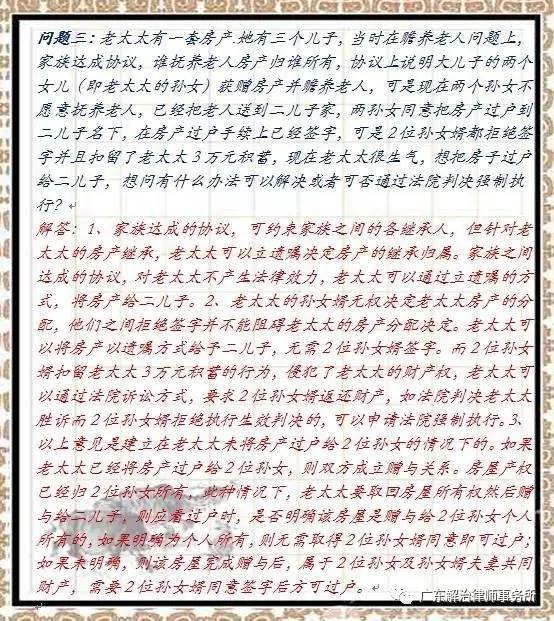 问题三：老太太有一套房产.她有三个儿子，当时在赡养老人问题上，
家族达成协议，谁抚养老人房产归谁所有，协议上说明大儿子的两个
女儿（即老太太的孙女）获赠房产并赡养老人，可是现在两个孙女不
愿意抚养老人，已经把老人送到二儿子家，两孙女同意把房产过户到
二儿子名下，在房产过户手续上已经签字，可是2位孙女婿都拒绝签
字并且扣留了老太太3万元积蓄，现在老太太很生气，想把房子过户
给二儿子，想问有什么办法可以解决或者可否通过法院判决强制执
行？
解答：1、家族达成的协议，可约束家族之间的各继承人，但针对老
太太的房产继承，老太太可以立遗嘱决定房产的继承归属。家族之间
达成的协议，对老太太不产生法律效力，老太太可以通过立遗嘱的方
式，将房产给二儿子。2、老太太的孙女婿无权决定老太太房产的分
配，他们之间拒绝签字并不能阻碍老太太的房产分配决定。老太太可
以将房产以遗嘱方式给予二儿子，无需2位孙女婿签字。而2位孙女
婿扣留老太太3万元积蓄的行为，侵犯了老太太的财产权，老太太可
以通过法院诉讼方式，要求2位孙女婿返还财产，如法院判决老太太
胜诉而2位孙女婿拒绝执行生效判决的，可以申请法院强制执行。3、
以上意见是建立在老太太未将房产过户给2位孙女的情况下的。如果
老太太已经将房产过户给2位孙女，则双方成立赠与关系。房屋产权
已经归2位孙女所有，此种情况下，老太太要取回房屋所有权然后赠
与给二儿子，则应看过户时，是否明确该房屋是赠与给2位孙女个人
所有的，如果明确为个人所有，则无需取得2位孙女婿同意即可过户；
如果未明确，则该房屋完成赠与后，属于2位孙女及孙女婿夫妻共同
财产，需要2位孙女婿同意签字后方可过户。
广东解治律师事务所